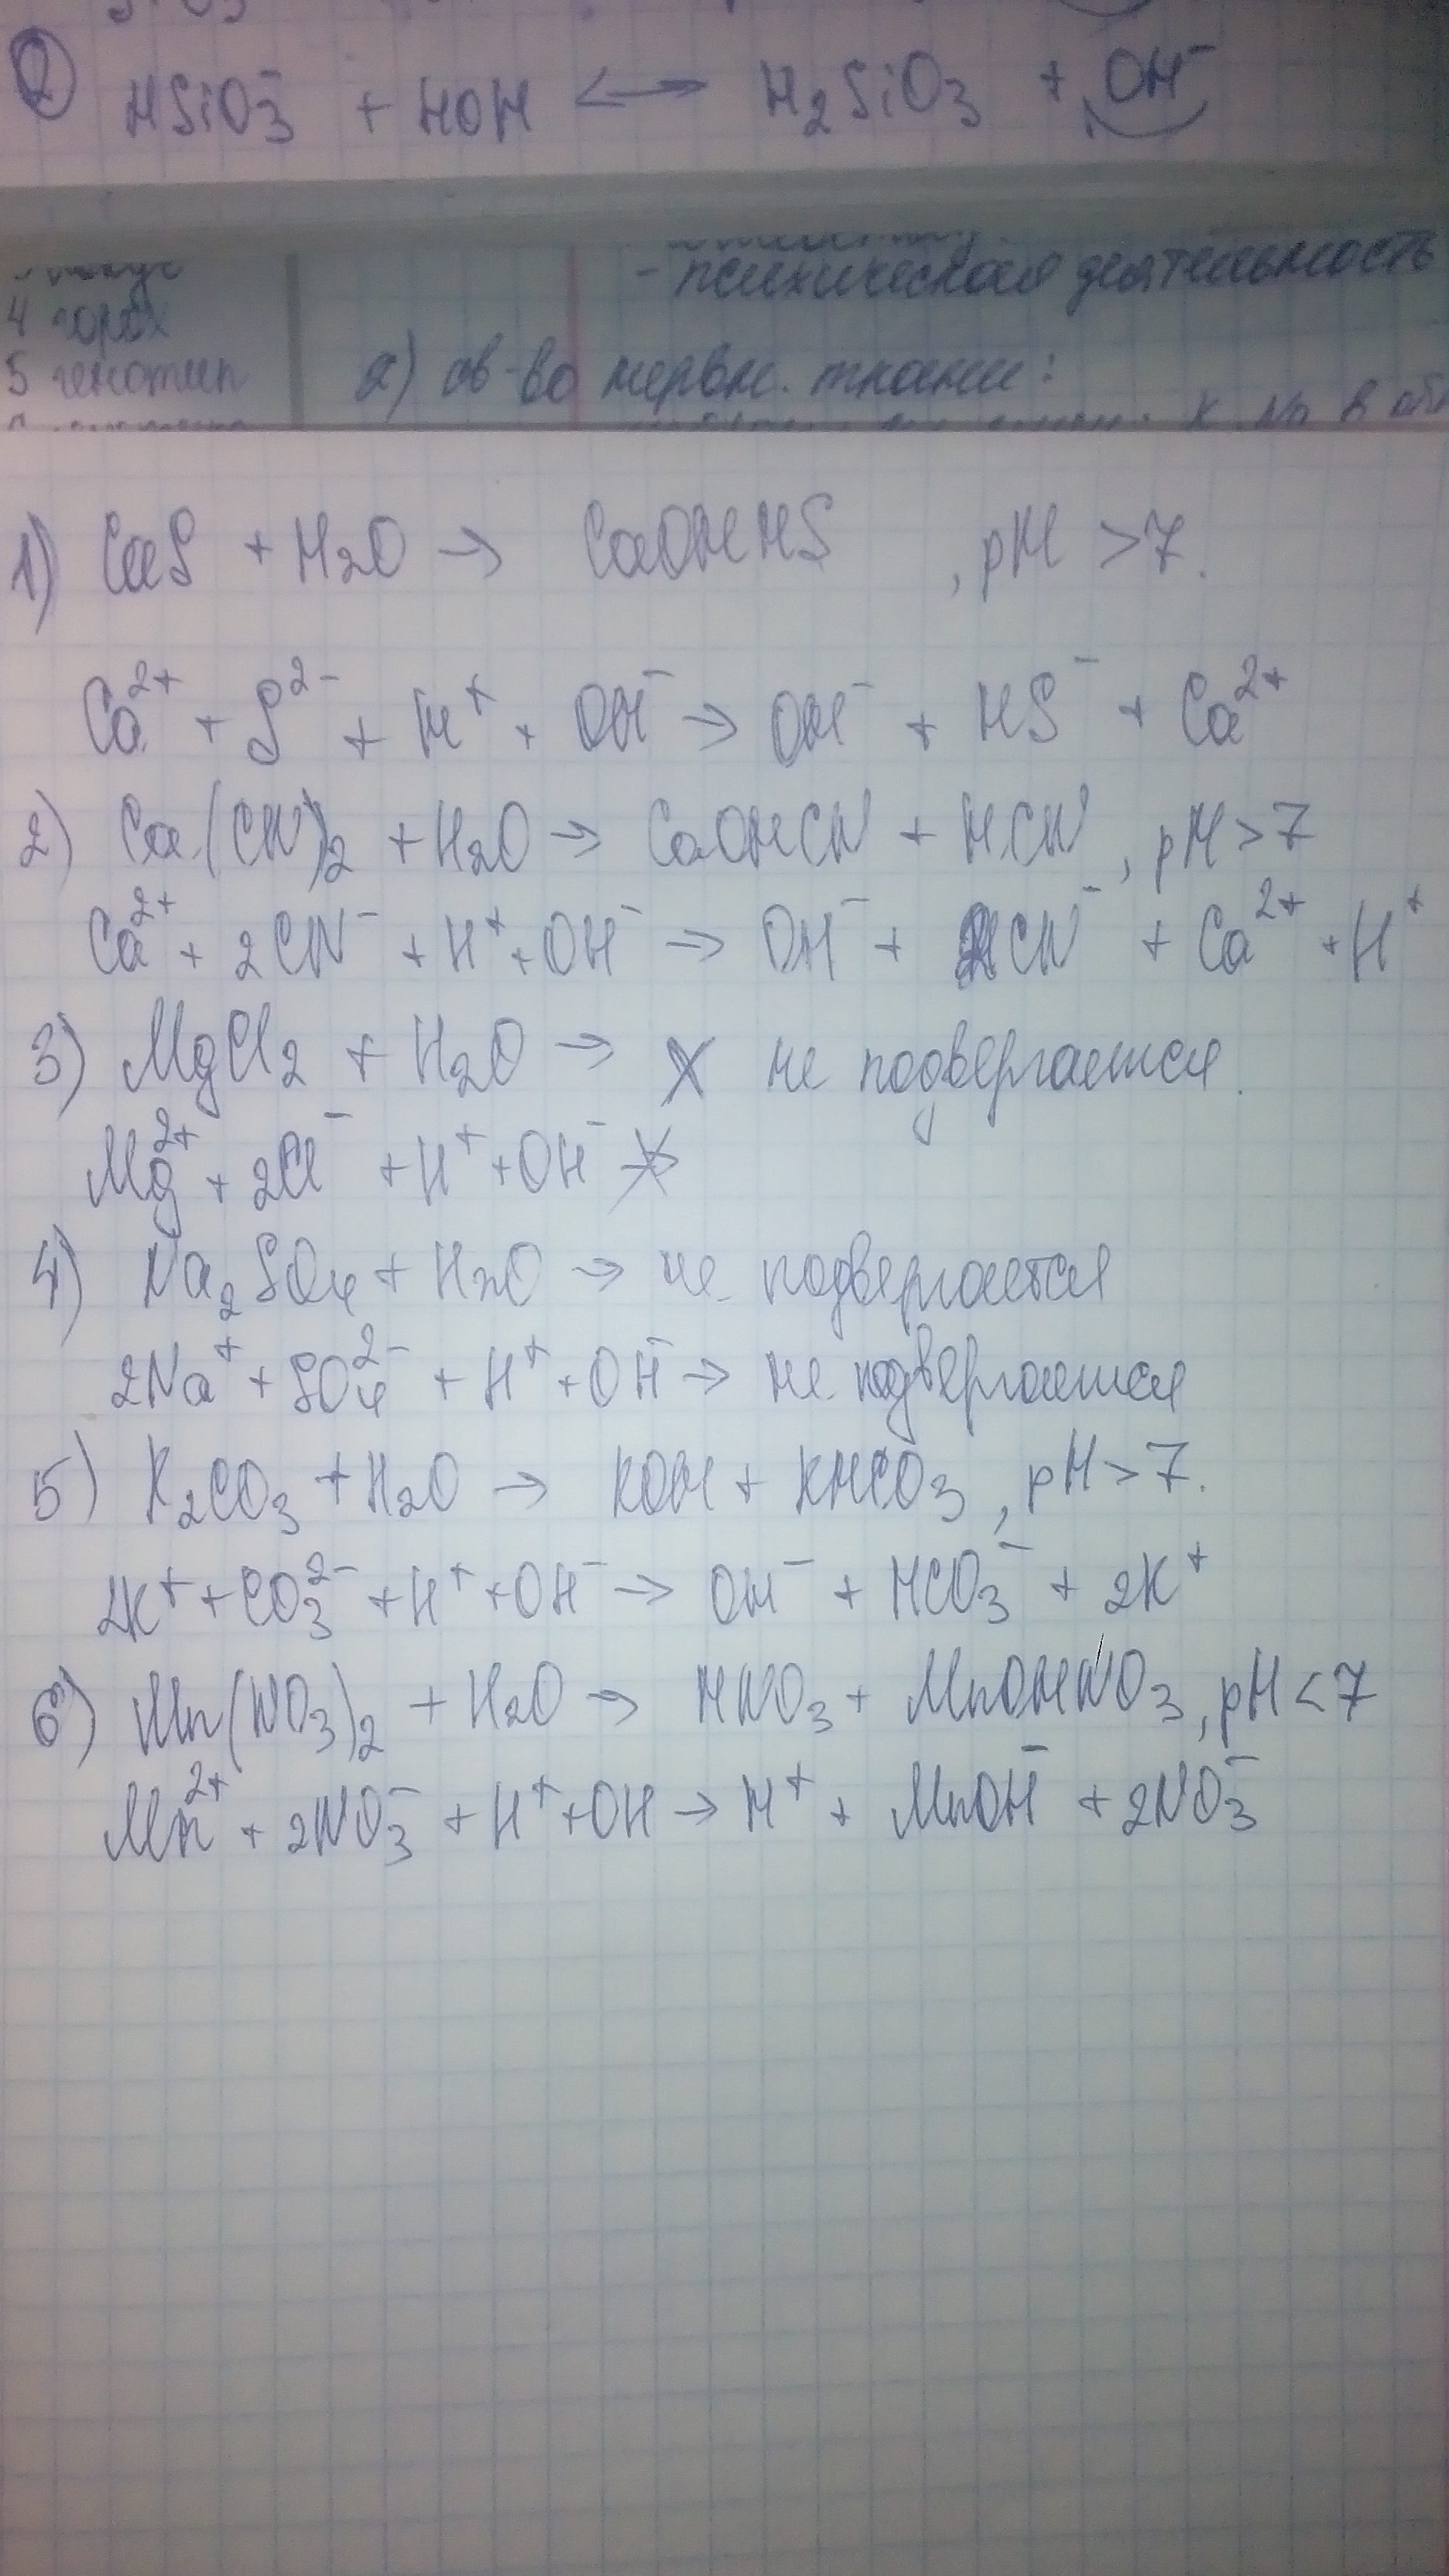 2 HSiO3⁻ + HOH <-> H2SiO3 + OH⁻
- психическая деятельность
4 горох
5 генотип
2) св-во нервн. ткани:
1) CaS + H2O → CaOHHS , pH > 7.
Ca²⁺ + S²⁻ + H⁺ + OH⁻ → OH⁻ + HS⁻ + Ca²⁺
2) Ca(CN)2 + H2O → CaOHCN + HCN , pH > 7
Ca²⁺ + 2CN⁻ + H⁺ + OH⁻ → OH⁻ + 2CN⁻ + Ca²⁺ + H⁺
3) MgCl2 + H2O → X не подвергается.
Mg²⁺ + 2Cl⁻ + H⁺ + OH⁻ ↛
4) Na2SO4 + H2O → не подвергается
2Na⁺ + SO4²⁻ + H⁺ + OH⁻ → не подвергается
5) K2CO3 + H2O → KOH + KHCO3 , pH > 7.
2K⁺ + CO3²⁻ + H⁺ + OH⁻ → OH⁻ + HCO3⁻ + 2K⁺
6) Mn(NO3)2 + H2O → HNO3 + MnOHNO3, pH < 7
Mn²⁺ + 2NO3⁻ + H⁺ + OH → H⁺ + MnOH⁻ + 2NO3⁻